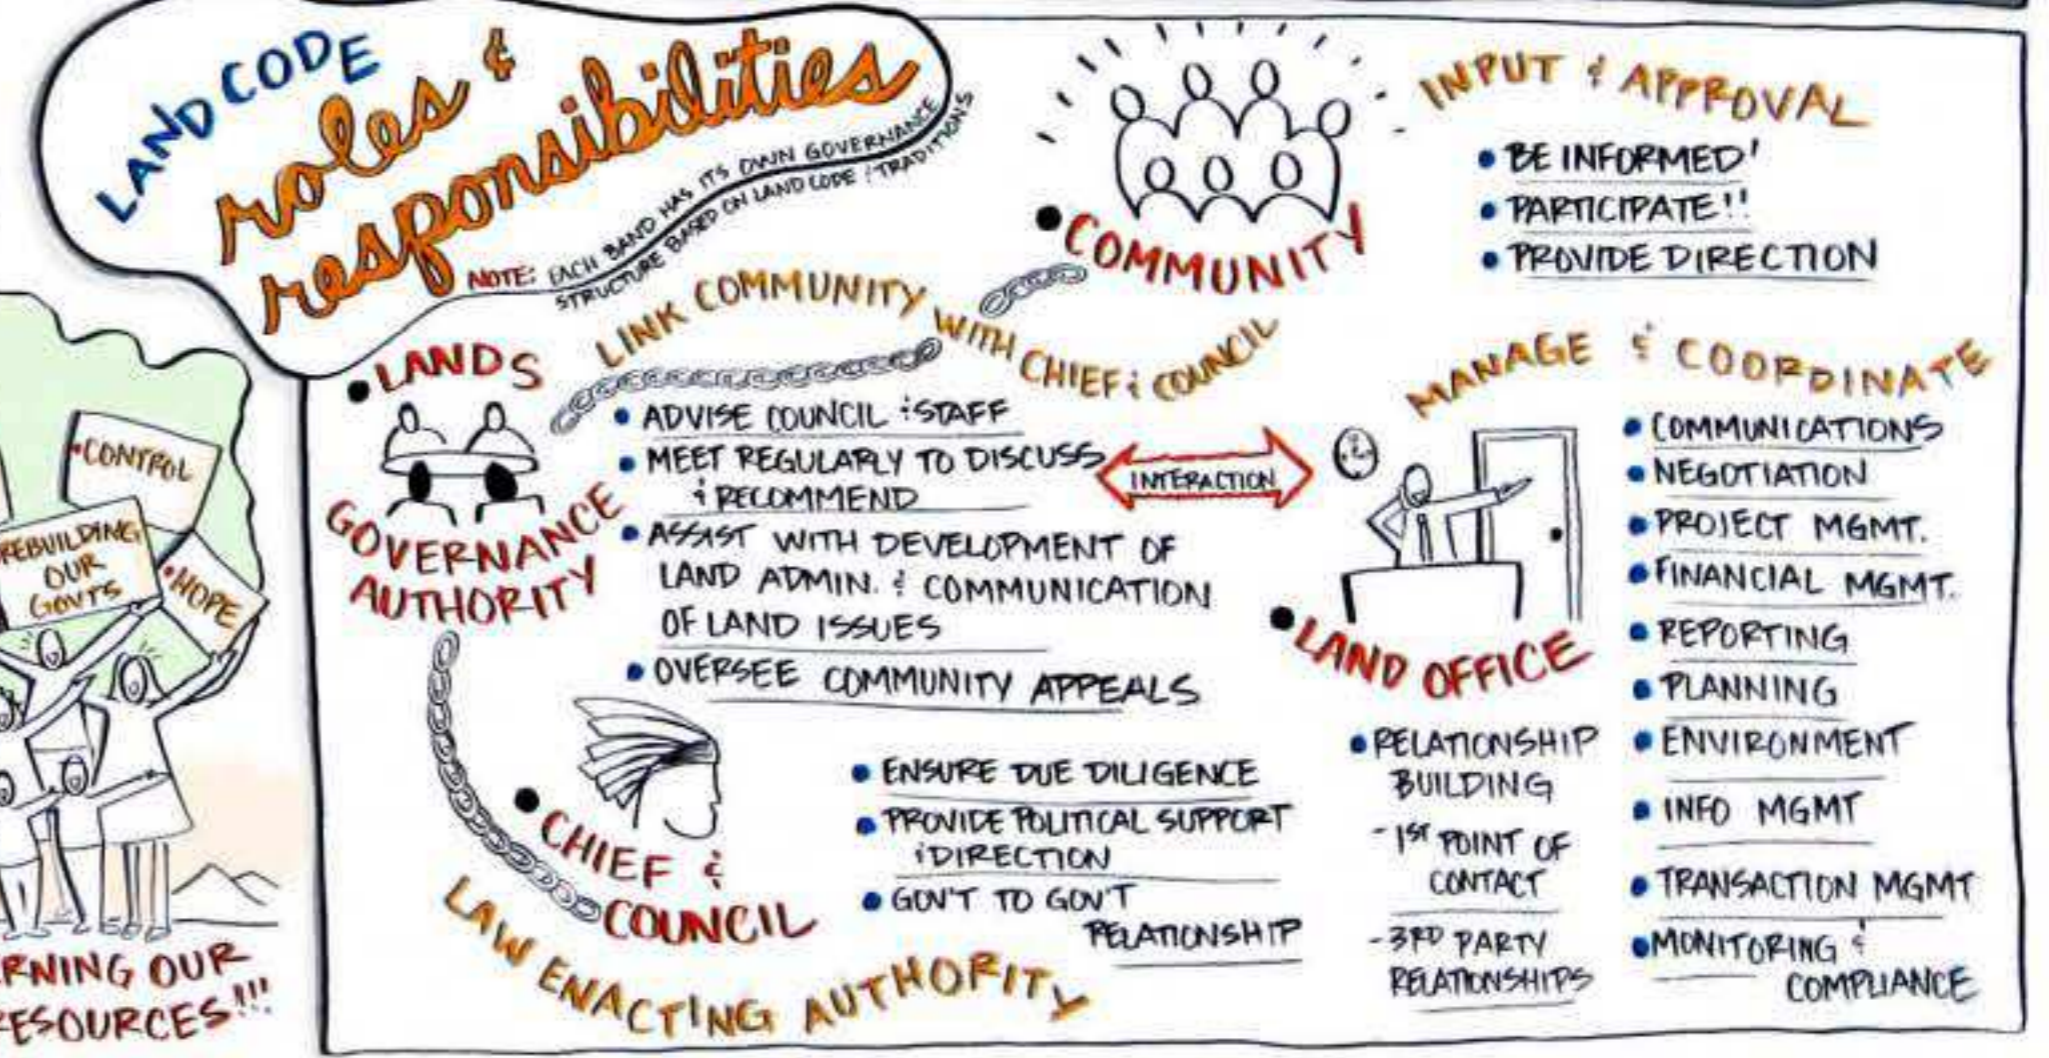 LAND CODE
roles &
responsibilities
NOTE: EACH BAND HAS ITS OWN GOVERNANCE
STRUCTURE BASED ON LAND CODE & TRADITIONS
• COMMUNITY
INPUT & APPROVAL
• BE INFORMED!
• PARTICIPATE!!
• PROVIDE DIRECTION
• LANDS
GOVERNANCE
AUTHORITY
LINK COMMUNITY WITH CHIEF & COUNCIL
• ADVISE COUNCIL & STAFF
• MEET REGULARLY TO DISCUSS
& RECOMMEND
• ASSIST WITH DEVELOPMENT OF
LAND ADMIN. & COMMUNICATION
OF LAND ISSUES
• OVERSEE COMMUNITY APPEALS
INTERACTION
• CHIEF &
COUNCIL
LAW ENACTING AUTHORITY
• ENSURE DUE DILIGENCE
• PROVIDE POLITICAL SUPPORT
& DIRECTION
• GOV'T TO GOV'T
RELATIONSHIP
MANAGE & COORDINATE
• LAND OFFICE
• RELATIONSHIP
BUILDING
- 1ST POINT OF
CONTACT
- 3RD PARTY
RELATIONSHIPS
• COMMUNICATIONS
• NEGOTIATION
• PROJECT MGMT.
• FINANCIAL MGMT.
• REPORTING
• PLANNING
• ENVIRONMENT
• INFO MGMT
• TRANSACTION MGMT
• MONITORING &
COMPLIANCE
• CONTROL
REBUILDING
OUR
GOVTS
• HOPE
RNING OUR
ESOURCES!!!